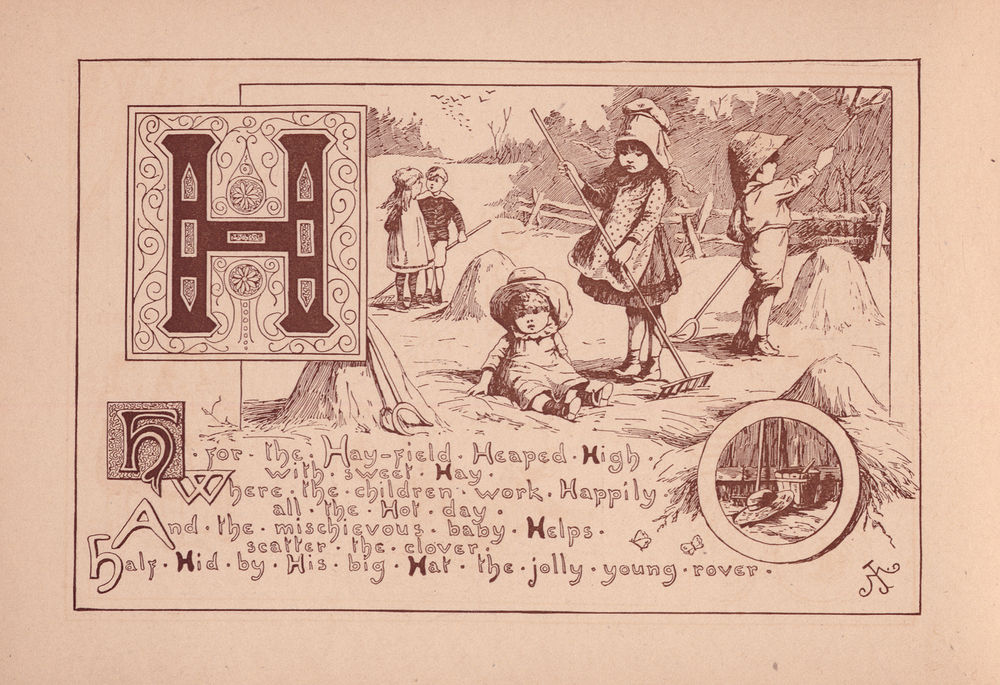 H
H · for · the · Hay-field · Heaped · High ·
with · sweet · Hay ·
Where · the · children · work · Happily ·
all · the · Hot · day ·
And · the · mischievous · baby · Helps ·
scatter · the · clover ·
Half · Hid · by · His · big · Hat · the · jolly · young · rover ·